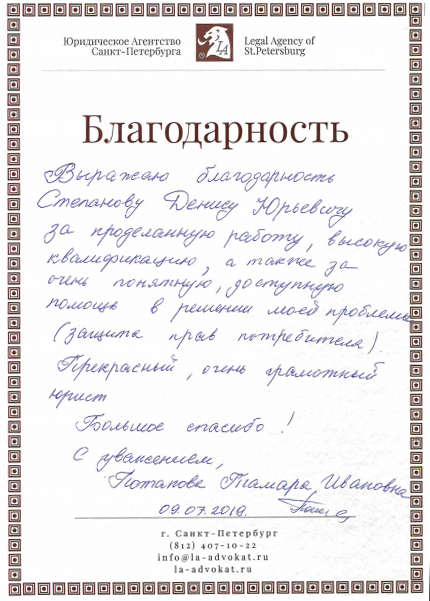 Юридическое Агентство
Санкт-Петербурга
LA
Legal Agency of
St.Petersburg
Благодарность
Выражаю благодарность
Степанову Денису Юрьевичу
за проделанную работу, высокую
квалификацию, а также за
очень понятную, доступную
помощь в решении моей проблемы
(защита прав потребителя).
Прекрасный, очень грамотный
юрист
Большое спасибо!
С уважением,
Потапова Тамара Ивановна
09.07.2019.
г. Санкт-Петербург
(812) 407-10-22
info@la-advokat.ru
la-advokat.ru